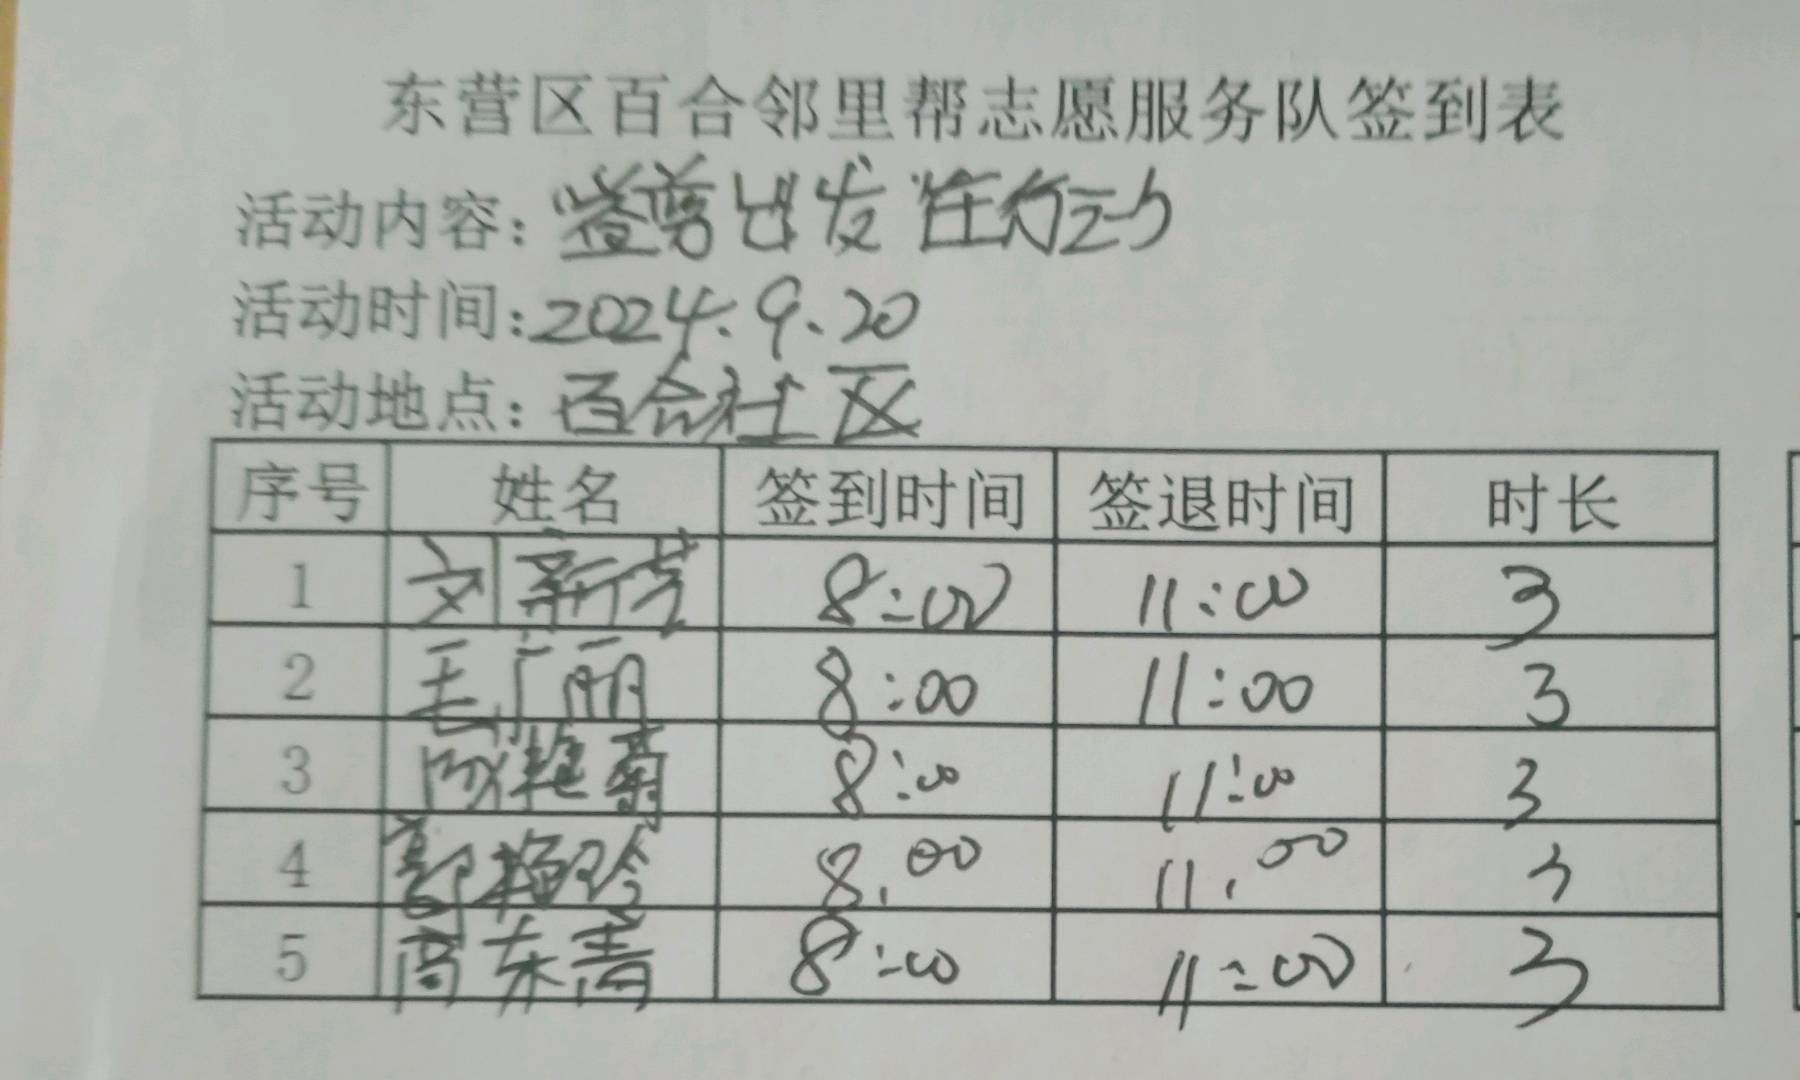 东营区百合邻里帮志愿服务队签到表
活动内容：益剪出发 在行动
活动时间：2024.9.20
活动地点：百合社区
序号 姓名 签到时间 签退时间 时长
1 刘新芳 8:00 11:00 3
2 毛广丽 8:00 11:00 3
3 艳菊 8:00 11:00 3
4 郭梅玲 8.00 11.00 3
5 高东青 8:00 11:00 3